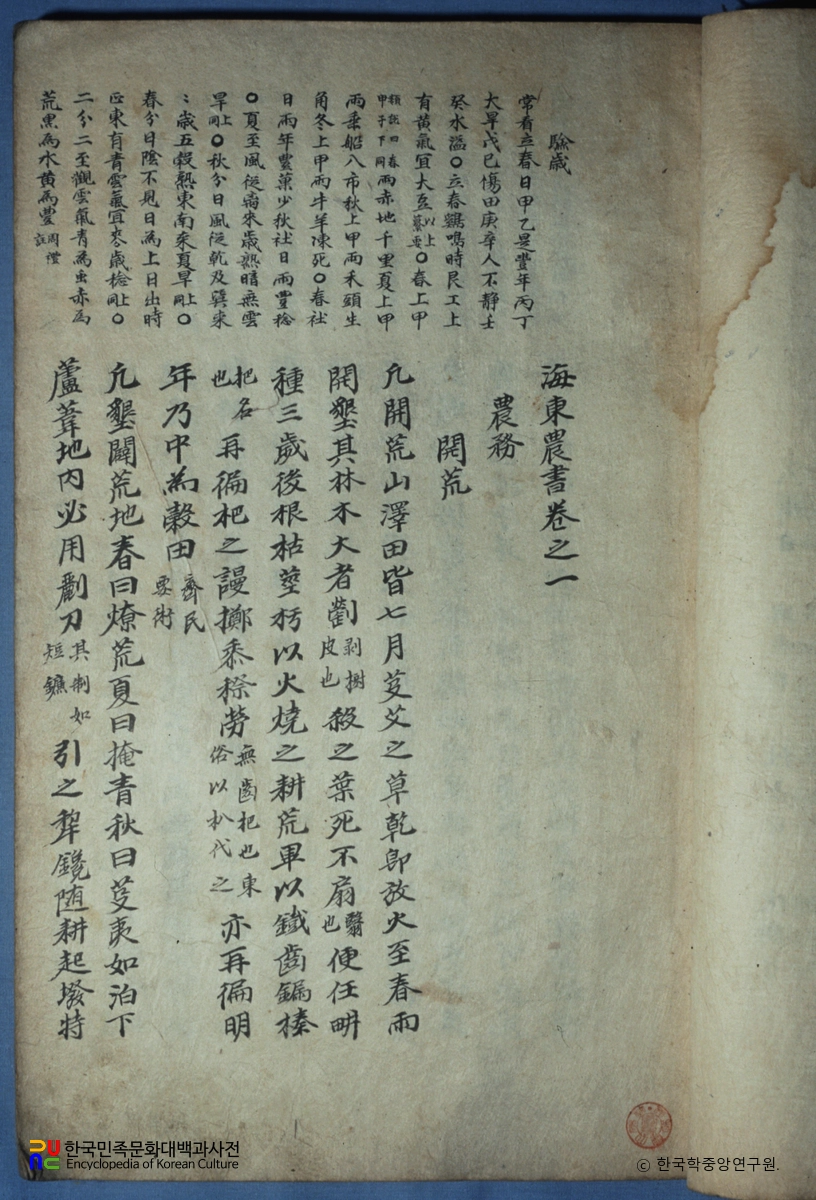 驗歲
常看立春日甲乙是豐年丙丁
大旱戊己傷田庚辛人不靜壬
癸水溢〇立春鷄鳴時艮工上
有黃氣宜大豆以上纂要〇春上甲
類說曰春甲子下同雨赤地千里夏上甲
雨乘船入市秋上甲雨禾頭生
角冬上甲雨牛羊凍死〇春社
日雨年豐菓少秋社日雨豐稔
〇夏至風從离來歲熟晴無雲
旱上同〇秋分日風從乾及巽來
〻歲五穀熟東南來夏旱上同〇
春分日陰不見日為上日出時
正東有青雲氣宜麥歲稔上同〇
二分二至觀雲氣青為虫赤為
荒黑為水黃為豐周禮註
海東農書卷之一
農務
開荒
凡開荒山澤田皆七月芟艾之草乾即放火至春而
開墾其林木大者劉剝樹皮也殺之葉死不扇翳也便任畊
種三歲後根枯莖朽以火燒之耕荒畢以鐵齒鎘榛
杷名也再徧杷之謾擲黍穄勞無齒杷也東俗以朳代之亦再徧明
年乃中為穀田齊民要術
凡墾闢荒地春曰燎荒夏曰掩青秋曰芟夷如泊下
蘆葦地內必用劚刀其制如短鎌引之犂鑱随耕起墢特
한국민족문화대백과사전
Encyclopedia of Korean Culture
© 한국학중앙연구원.